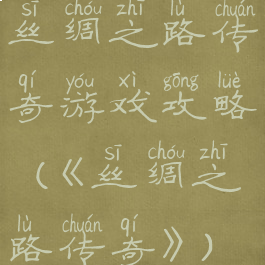 sī chóu zhī lù chuán
丝绸之路传
qí yóu xì gōng lüè
奇游戏攻略
sī chóu zhī
(《丝绸之
lù chuán qí
路传奇》)